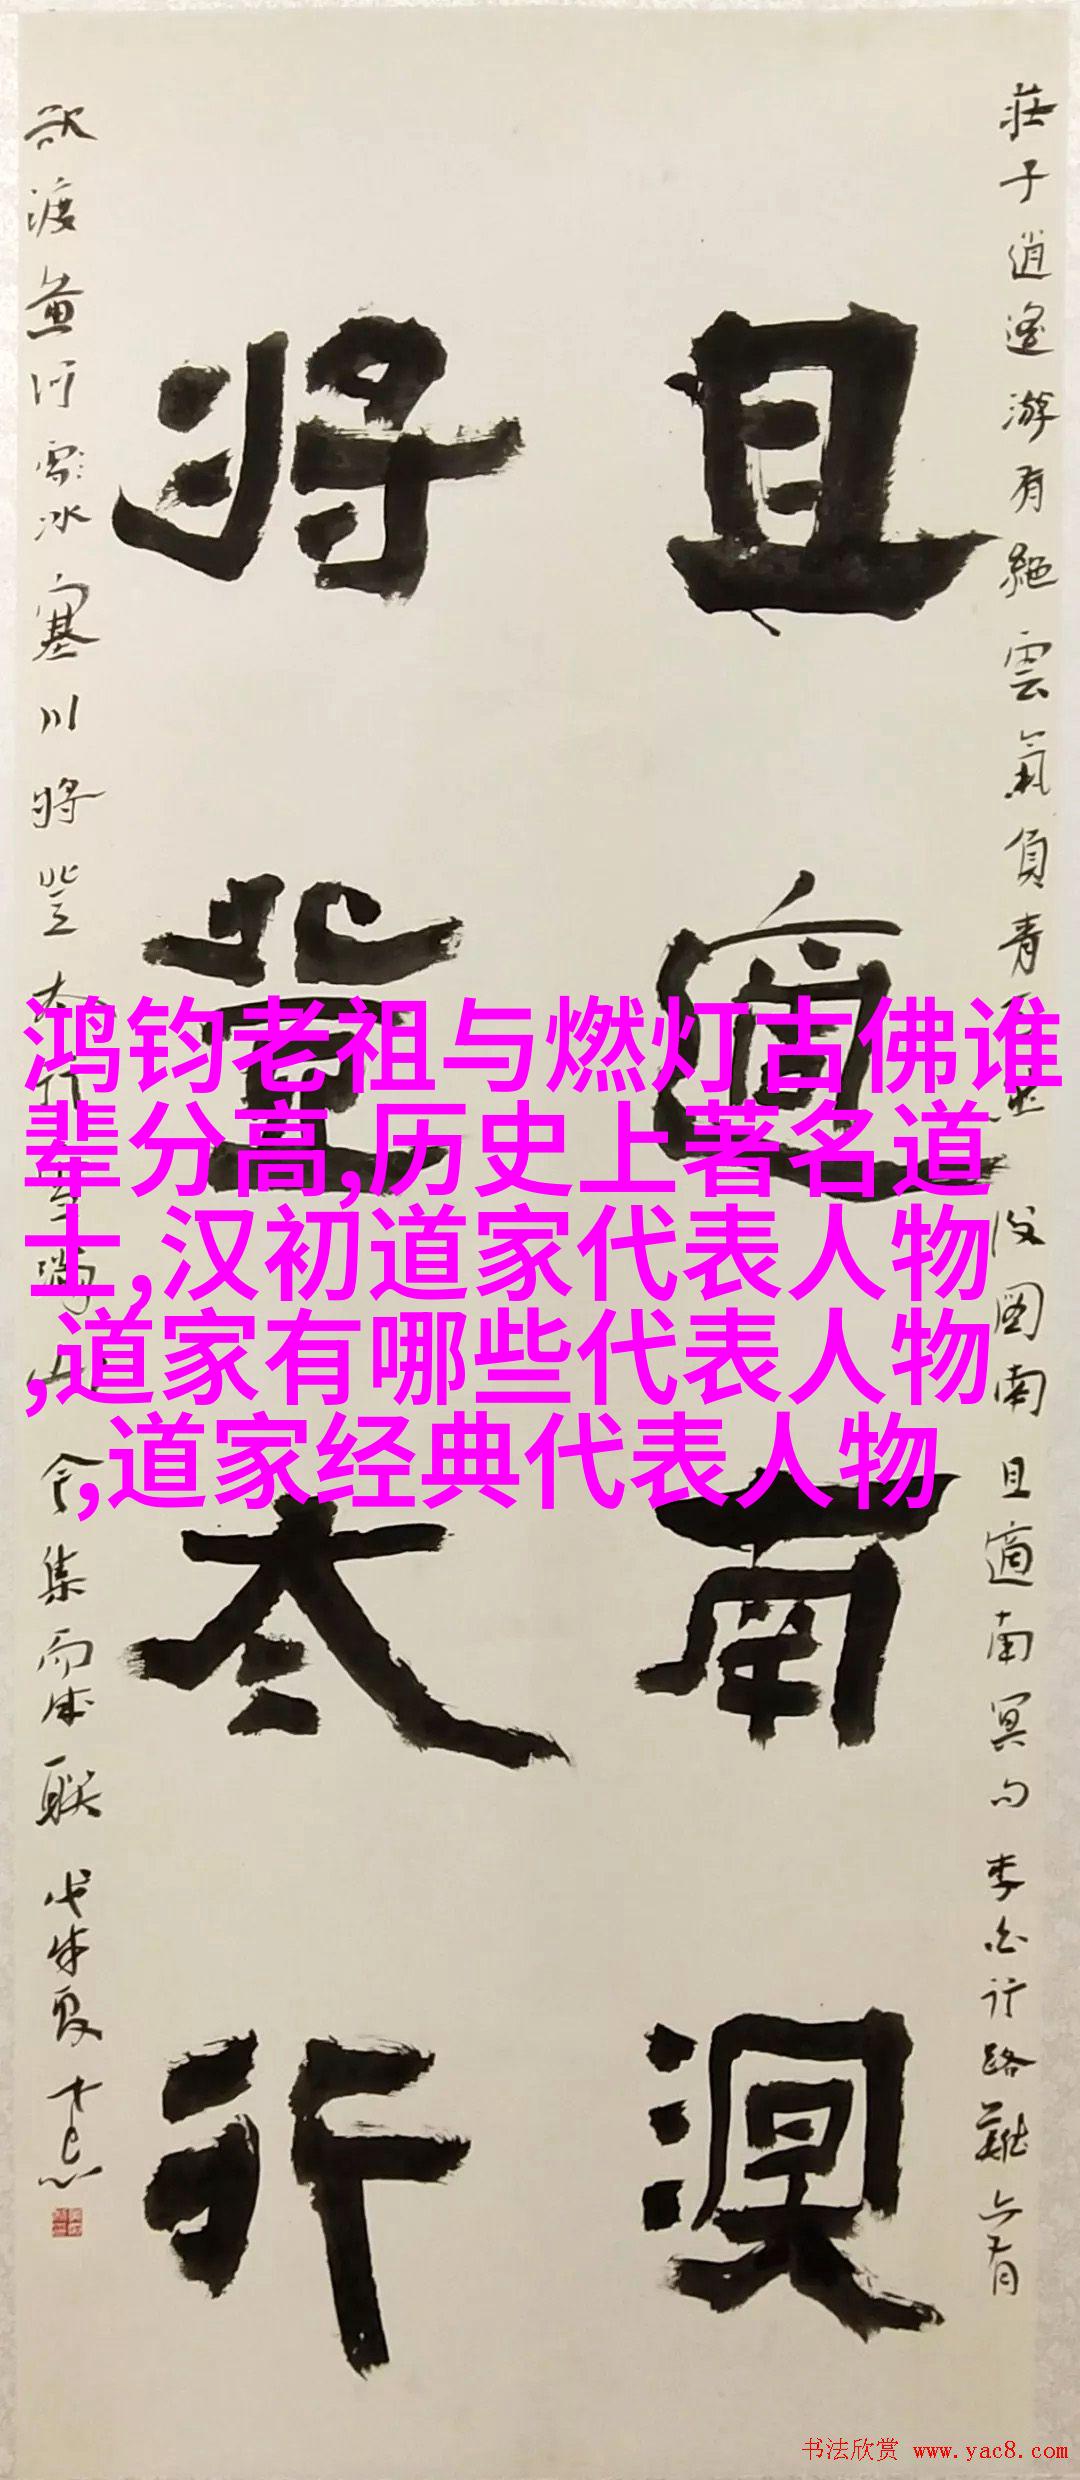 莊子逍遙游有絕雲氣負青
後圖南且適南冥句李白行路難亦有
且適南溟
將登太行
欲渡黃河
冰塞川將登太行雪滿山
集而成聯戊戌夏
鸿钧老祖与燃灯古佛谁
辈分高,历史上著名道
士,汉初道家代表人物
,道家有哪些代表人物
,道家经典代表人物
书法欣赏 www.yac8.com